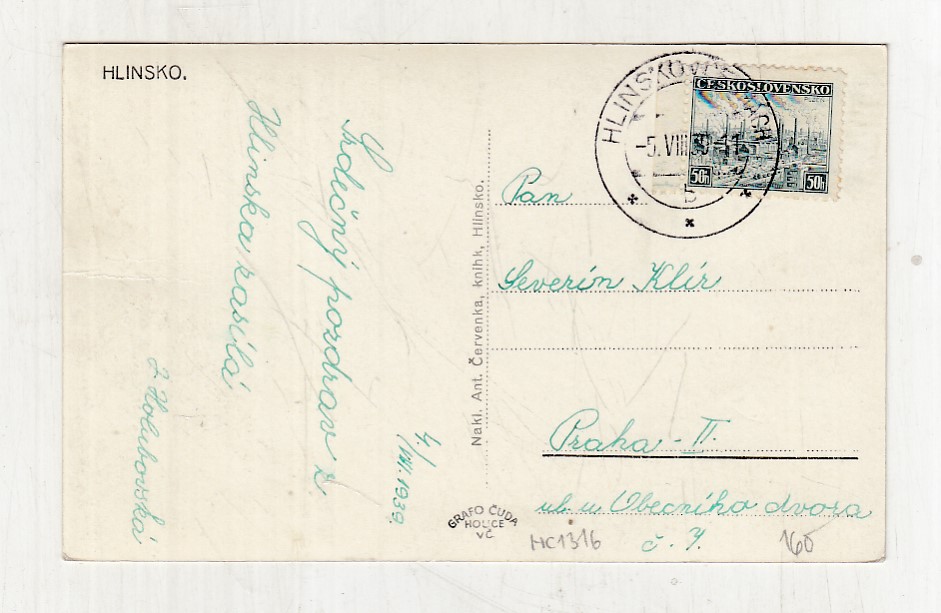 HLINSKO.
Srdečný pozdrav z
Hlinska zasílá
Holubovská
4./VIII. 1939.
Nakl. Ant. Červenka, knihk, Hlinsko.
GRAFO ČUDA
HOLICE
VČ
HLINSKO V ČECHÁCH
-5.VIII.39-11
b
ČESKOSLOVENSKO
PLZEŇ
50h 50h
Pan
Severin Klír
Praha - II.
ul. u Obecního dvora
č. 7.
HC1316
160